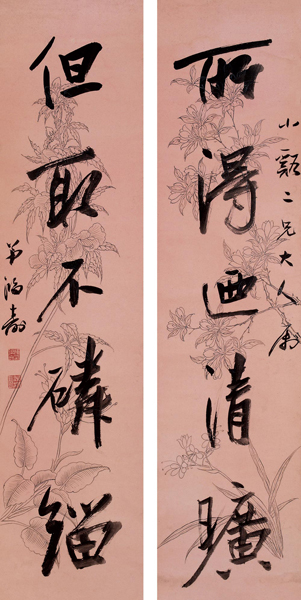 小谿二兄大人屬
所得迺清曠
但取不磷緇
弟鴻壽